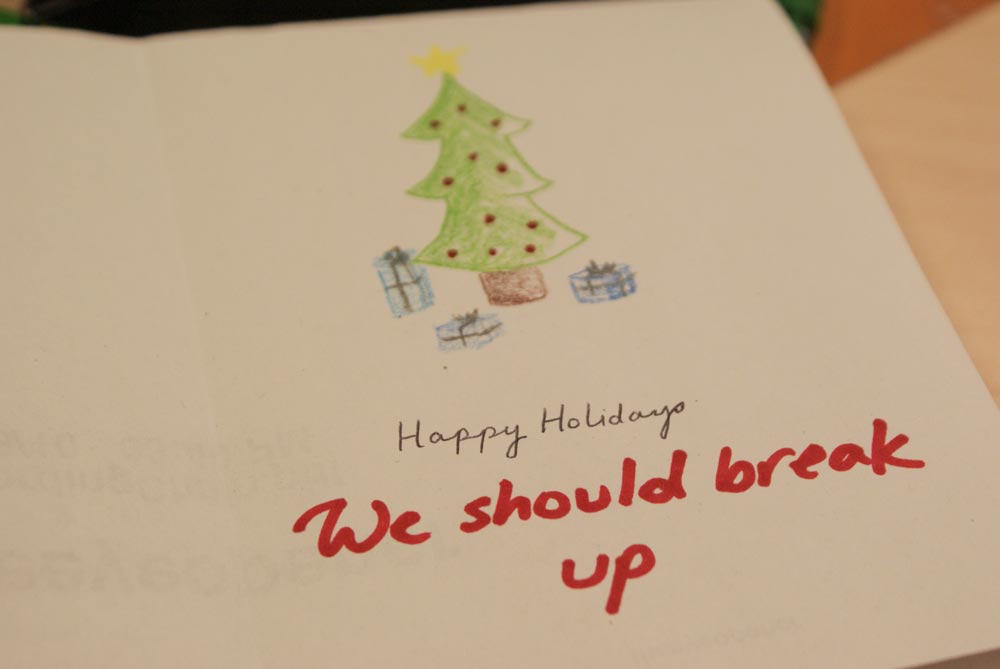 Happy Holidays
We should break
up